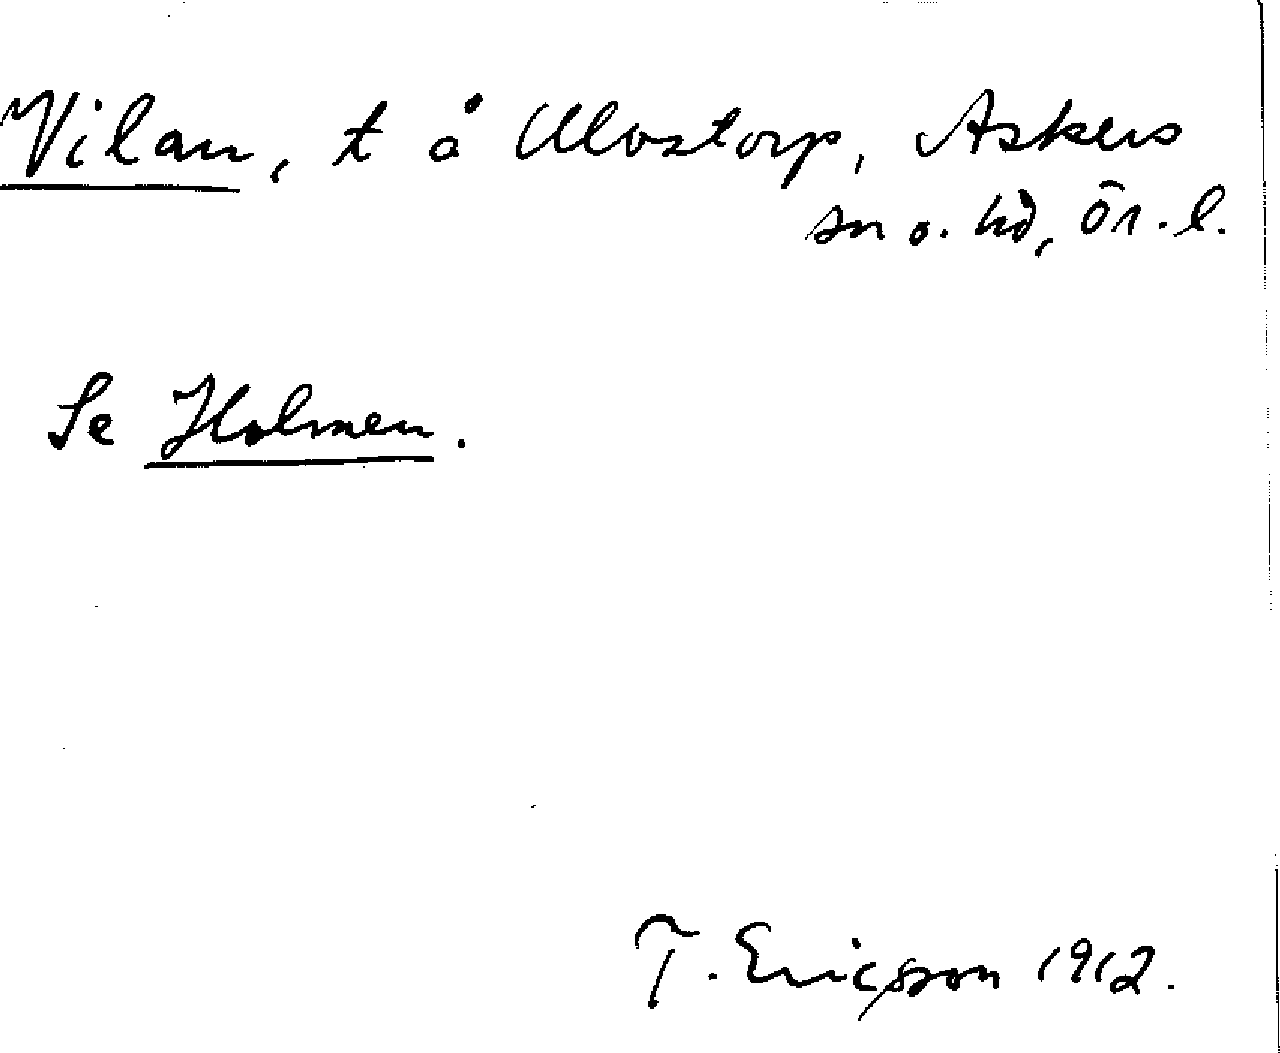 Vilan, t å Ulvstorp, Askers
sn o. hd, Ör. l.
Se Holmen.
T. Ericsson 1912.